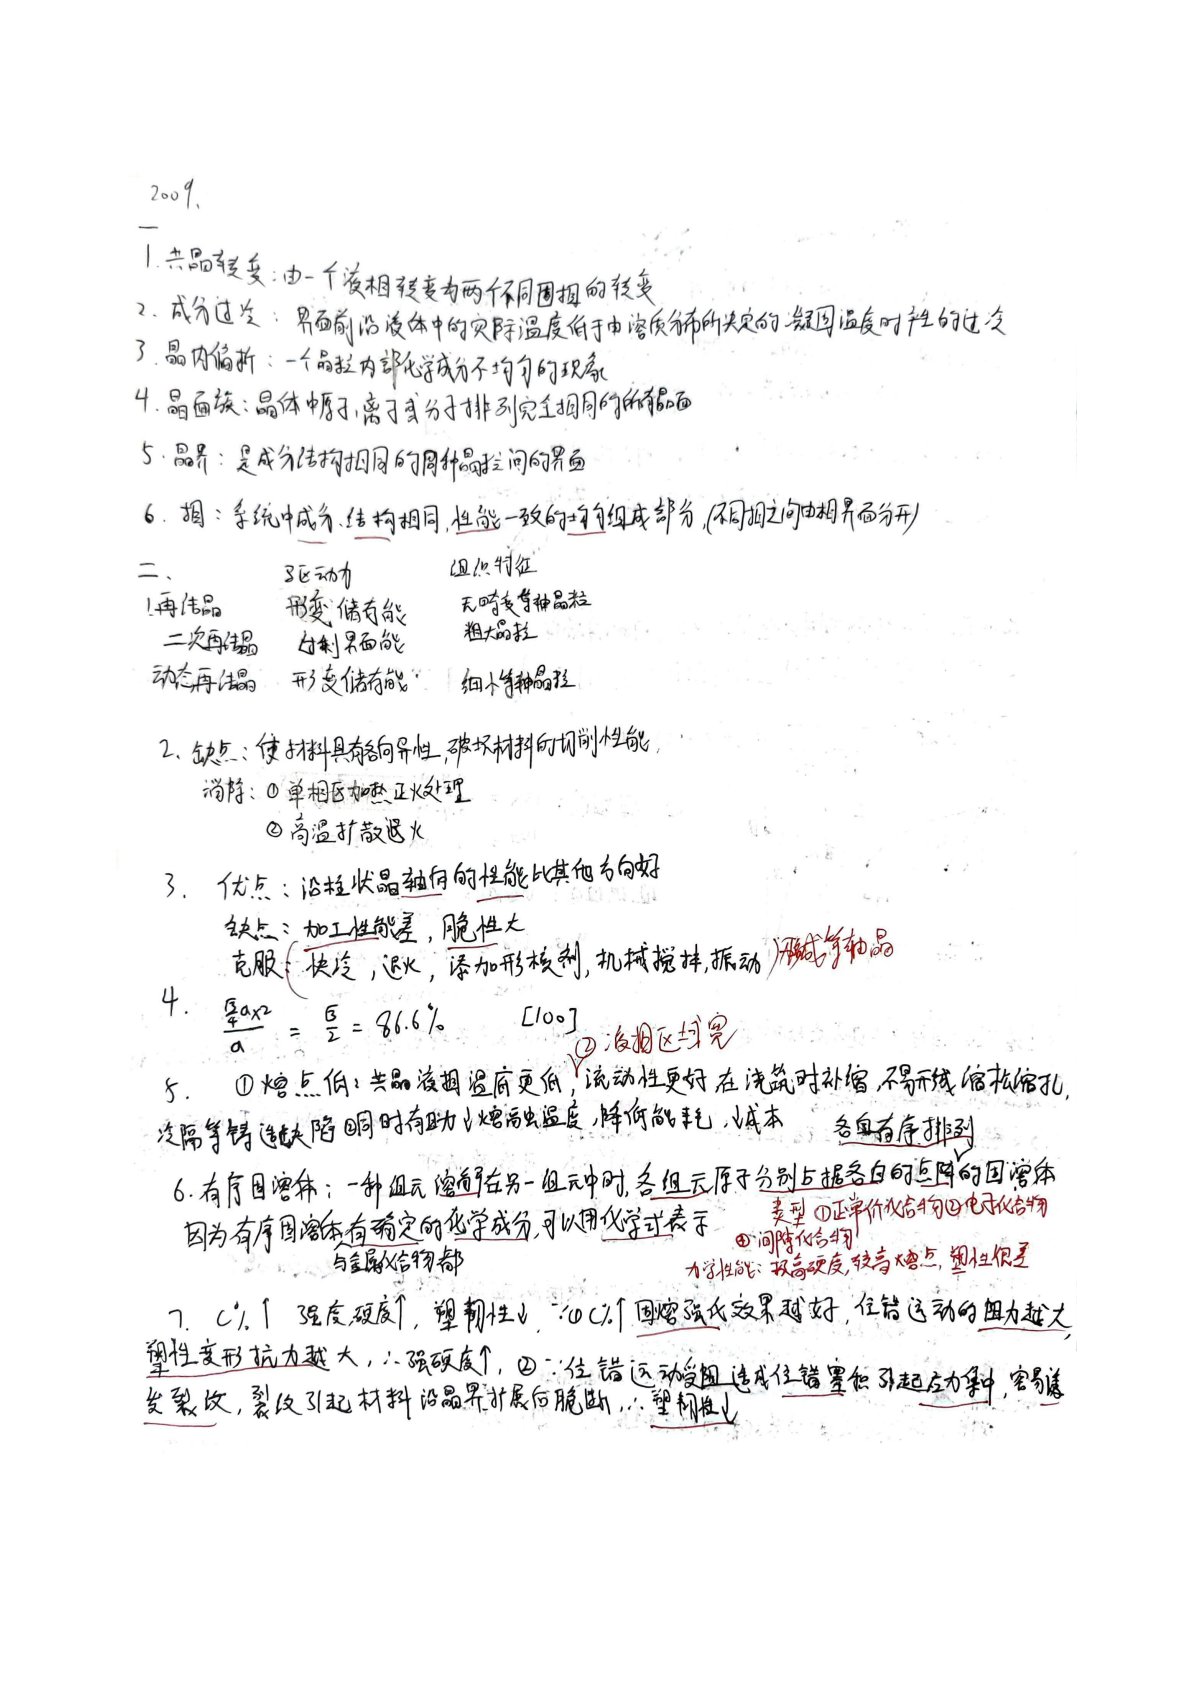 2009.
一
1. 共晶转变：由一个液相转变为两个不同固相的转变
2. 成分过冷：界面前沿液体中的实际温度低于由溶质分布所决定的凝固温度时产生的过冷
3. 晶内偏析：一个晶粒内部化学成分不均匀的现象
4. 晶面族：晶体中原子，离子或分子排列完全相同的所有晶面
5. 晶界：是成分结构相同的同种晶粒间的界面
6. 相：系统中成分、结构相同，性能一致的均匀组成部分，(不同相之间由相界面分开)
二、 驱动力 组织特征
1. 再结晶 形变储存能 无畸变等轴晶粒
二次再结晶 界面能 粗大晶粒
动态再结晶 形变储存能 细小等轴晶粒
2. 缺点：使材料具有各向异性，破坏材料的切削性能，
消除：① 单相区加热正火处理
② 高温扩散退火
3. 优点：沿柱状晶轴向的性能比其他方向好
缺点：加工性能差，脆性大
克服：快冷，退火，添加形核剂，机械搅拌，振动 形成等轴晶
4. (√3/4 a×2)/a = √3/2 = 86.6% [100]
② 液相区域宽
5. ① 熔点低：共晶液相温度更低，流动性更好 在浇筑时补缩，不易形成缩松缩孔，
冷隔等铸造缺陷 ②同时有助↓熔融温度，降低能耗，↓成本 各自有序排列
6. 有序固溶体：一种组元溶解在另一组元中时，各组元原子分别占据各自的点阵的固溶体
因为有序固溶体有确定的化学成分，可以用化学式表示 类型 ①正常价化合物②电子化合物
与金属化合物都 ④ 间隙化合物
力学性能：极高硬度，较高熔点，塑性很差
7. C%↑ 强度硬度↑，塑韧性↓ ∵① C%↑ 固熔强化效果越好，位错运动的阻力越大，
塑性变形抗力越大，∴强硬度↑，② ∵位错运动受阻造成位错塞积 引起应力集中，容易诱
发裂纹，裂纹引起材料沿晶界扩展后脆断，∴塑韧性↓